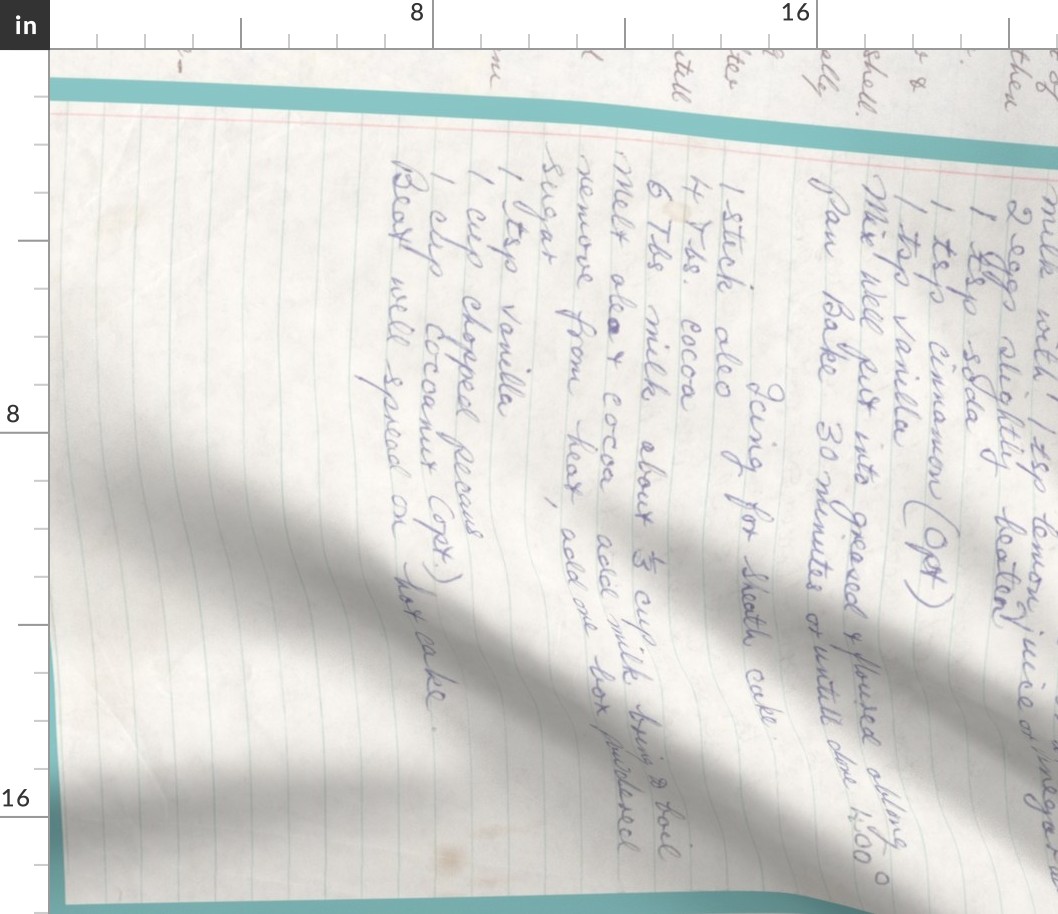 in
8
16
8
16
then
shell.
milk with 1 tsp lemon juice or vinegar
2 eggs slightly beaten
1 tsp soda
1 tsp cinnamon (Opt)
1 tsp vanilla
Mix well put into greased & floured oblong
Pan Bake 30 minutes or untill done 400°
Icing for sheath cake.
1 stick oleo
4 Tbs. cocoa
6 Tbs milk about ⅓ cup
Melt oleo & cocoa add milk bring to boil
remove from heat, add one box powdered
sugar
1 tsp vanilla
1 cup chopped pecans
1 cup cocoanut (opt.)
Beat well spread on hot cake.